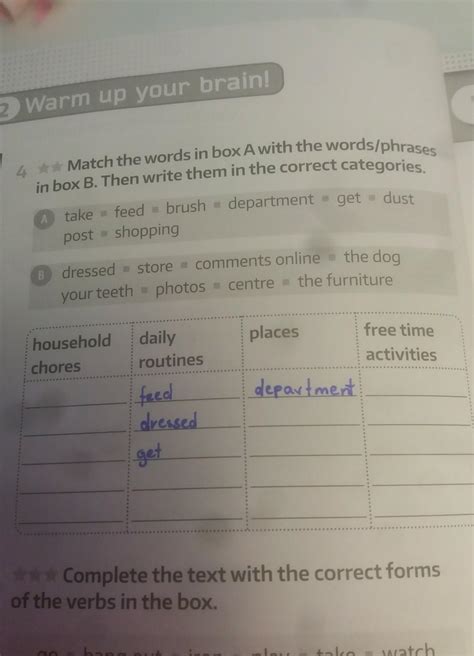 2 Warm up your brain!
4 ★★ Match the words in box A with the words/phrases
in box B. Then write them in the correct categories.
A take ▪ feed ▪ brush ▪ department ▪ get ▪ dust
post ▪ shopping
B dressed ▪ store ▪ comments online ▪ the dog
your teeth ▪ photos ▪ centre ▪ the furniture
household chores
daily routines
places
free time activities
feed
department
dressed
get
★★★ Complete the text with the correct forms
of the verbs in the box.
go ▪ hang out ▪ iron ▪ play ▪ take ▪ watch